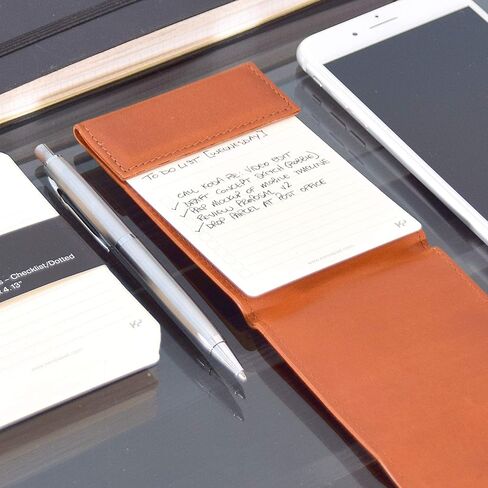 TO DO LIST [WEDNESDAY]
CALL KODA RE: VIDEO EDIT
✓ DRAFT CONCEPT SKETCH (ROBBIE)
✓ PREP MOCKUP OF MOBILE TIMELINE
REVIEW PROPOSAL V2
✓ DROP PARCEL AT POST OFFICE
– Checklist/Dotted
4.13"